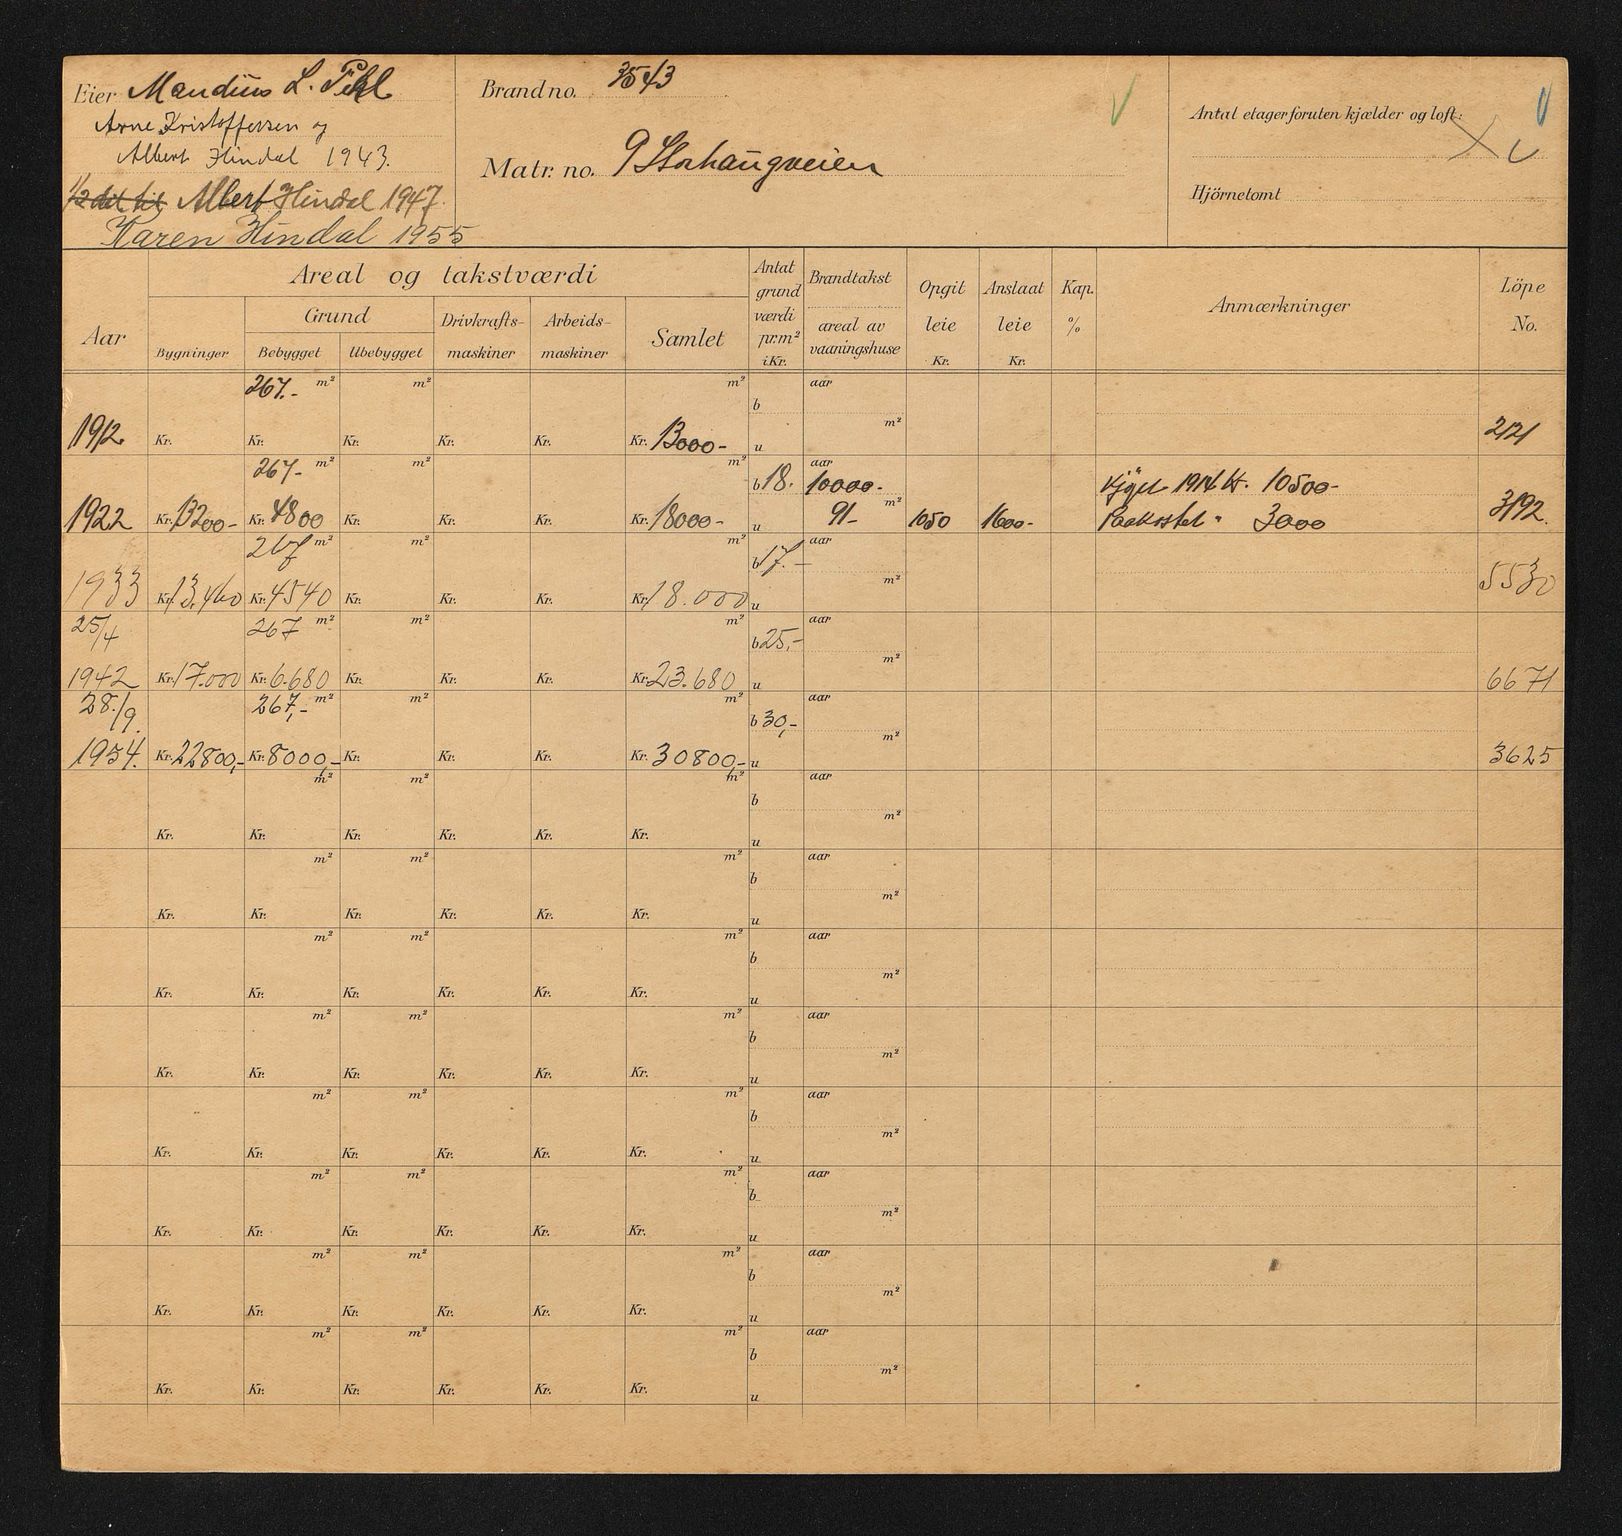 Eier Mandius L. Pihl
Arne Kristoffersen og
Albert Hindal 1943.
1/2 det til Albert Hindal 1947.
Karen Hindal 1955
Brand no. 3543
Matr. no. 9 Storhaugveien
Antal etager foruten kjælder og loft:
Hjörnetomt
Aar
Areal og takstværdi
Bygninger
Grund
Bebygget
Ubebygget
Drivkrafts-maskiner
Arbeids-maskiner
Samlet
Antat grundværdi pr.m² i Kr.
Brandtakst
areal av vaaningshuse
Opgit leie Kr.
Anslaat leie Kr.
Kap. %
Anmærkninger
Löpe No.
267.- m² m² m² aar
b m²
1912. Kr. Kr. Kr. Kr. Kr. Kr. 13000- u 2121
267- m² m² m² aar
b 18. 10000- Kjöpt 1914 kr. 10500-
m²
1922 Kr. 13200- Kr. 4800 Kr. Kr. Kr. Kr. 18000- u 91- 1050 1600- Paakostet " 3000 3192.
267 m² m² m² aar
b 17.- m²
1933 Kr. 13.460 Kr. 4540 Kr. Kr. Kr. Kr. 18.000 u 5530
25/4 267 m² m² m² aar
b 25,- m²
1942 Kr. 17.000 Kr. 6.680 Kr. Kr. Kr. Kr. 23.680 u 6671
28./9. 267,- m² m² m² aar
b 30,- m²
1954. Kr. 22800,- Kr. 8000,- Kr. Kr. Kr. Kr. 30800,- u 3625
m² m² m² aar
b m²
Kr. Kr. Kr. Kr. Kr. Kr. u
m² m² m² aar
b m²
Kr. Kr. Kr. Kr. Kr. Kr. u
m² m² m² aar
b m²
Kr. Kr. Kr. Kr. Kr. Kr. u
m² m² m² aar
b m²
Kr. Kr. Kr. Kr. Kr. Kr. u
m² m² m² aar
b m²
Kr. Kr. Kr. Kr. Kr. Kr. u
m² m² m² aar
b m²
Kr. Kr. Kr. Kr. Kr. Kr. u
m² m² m² aar
b m²
Kr. Kr. Kr. Kr. Kr. Kr. u
m² m² m² aar
b m²
Kr. Kr. Kr. Kr. Kr. Kr. u